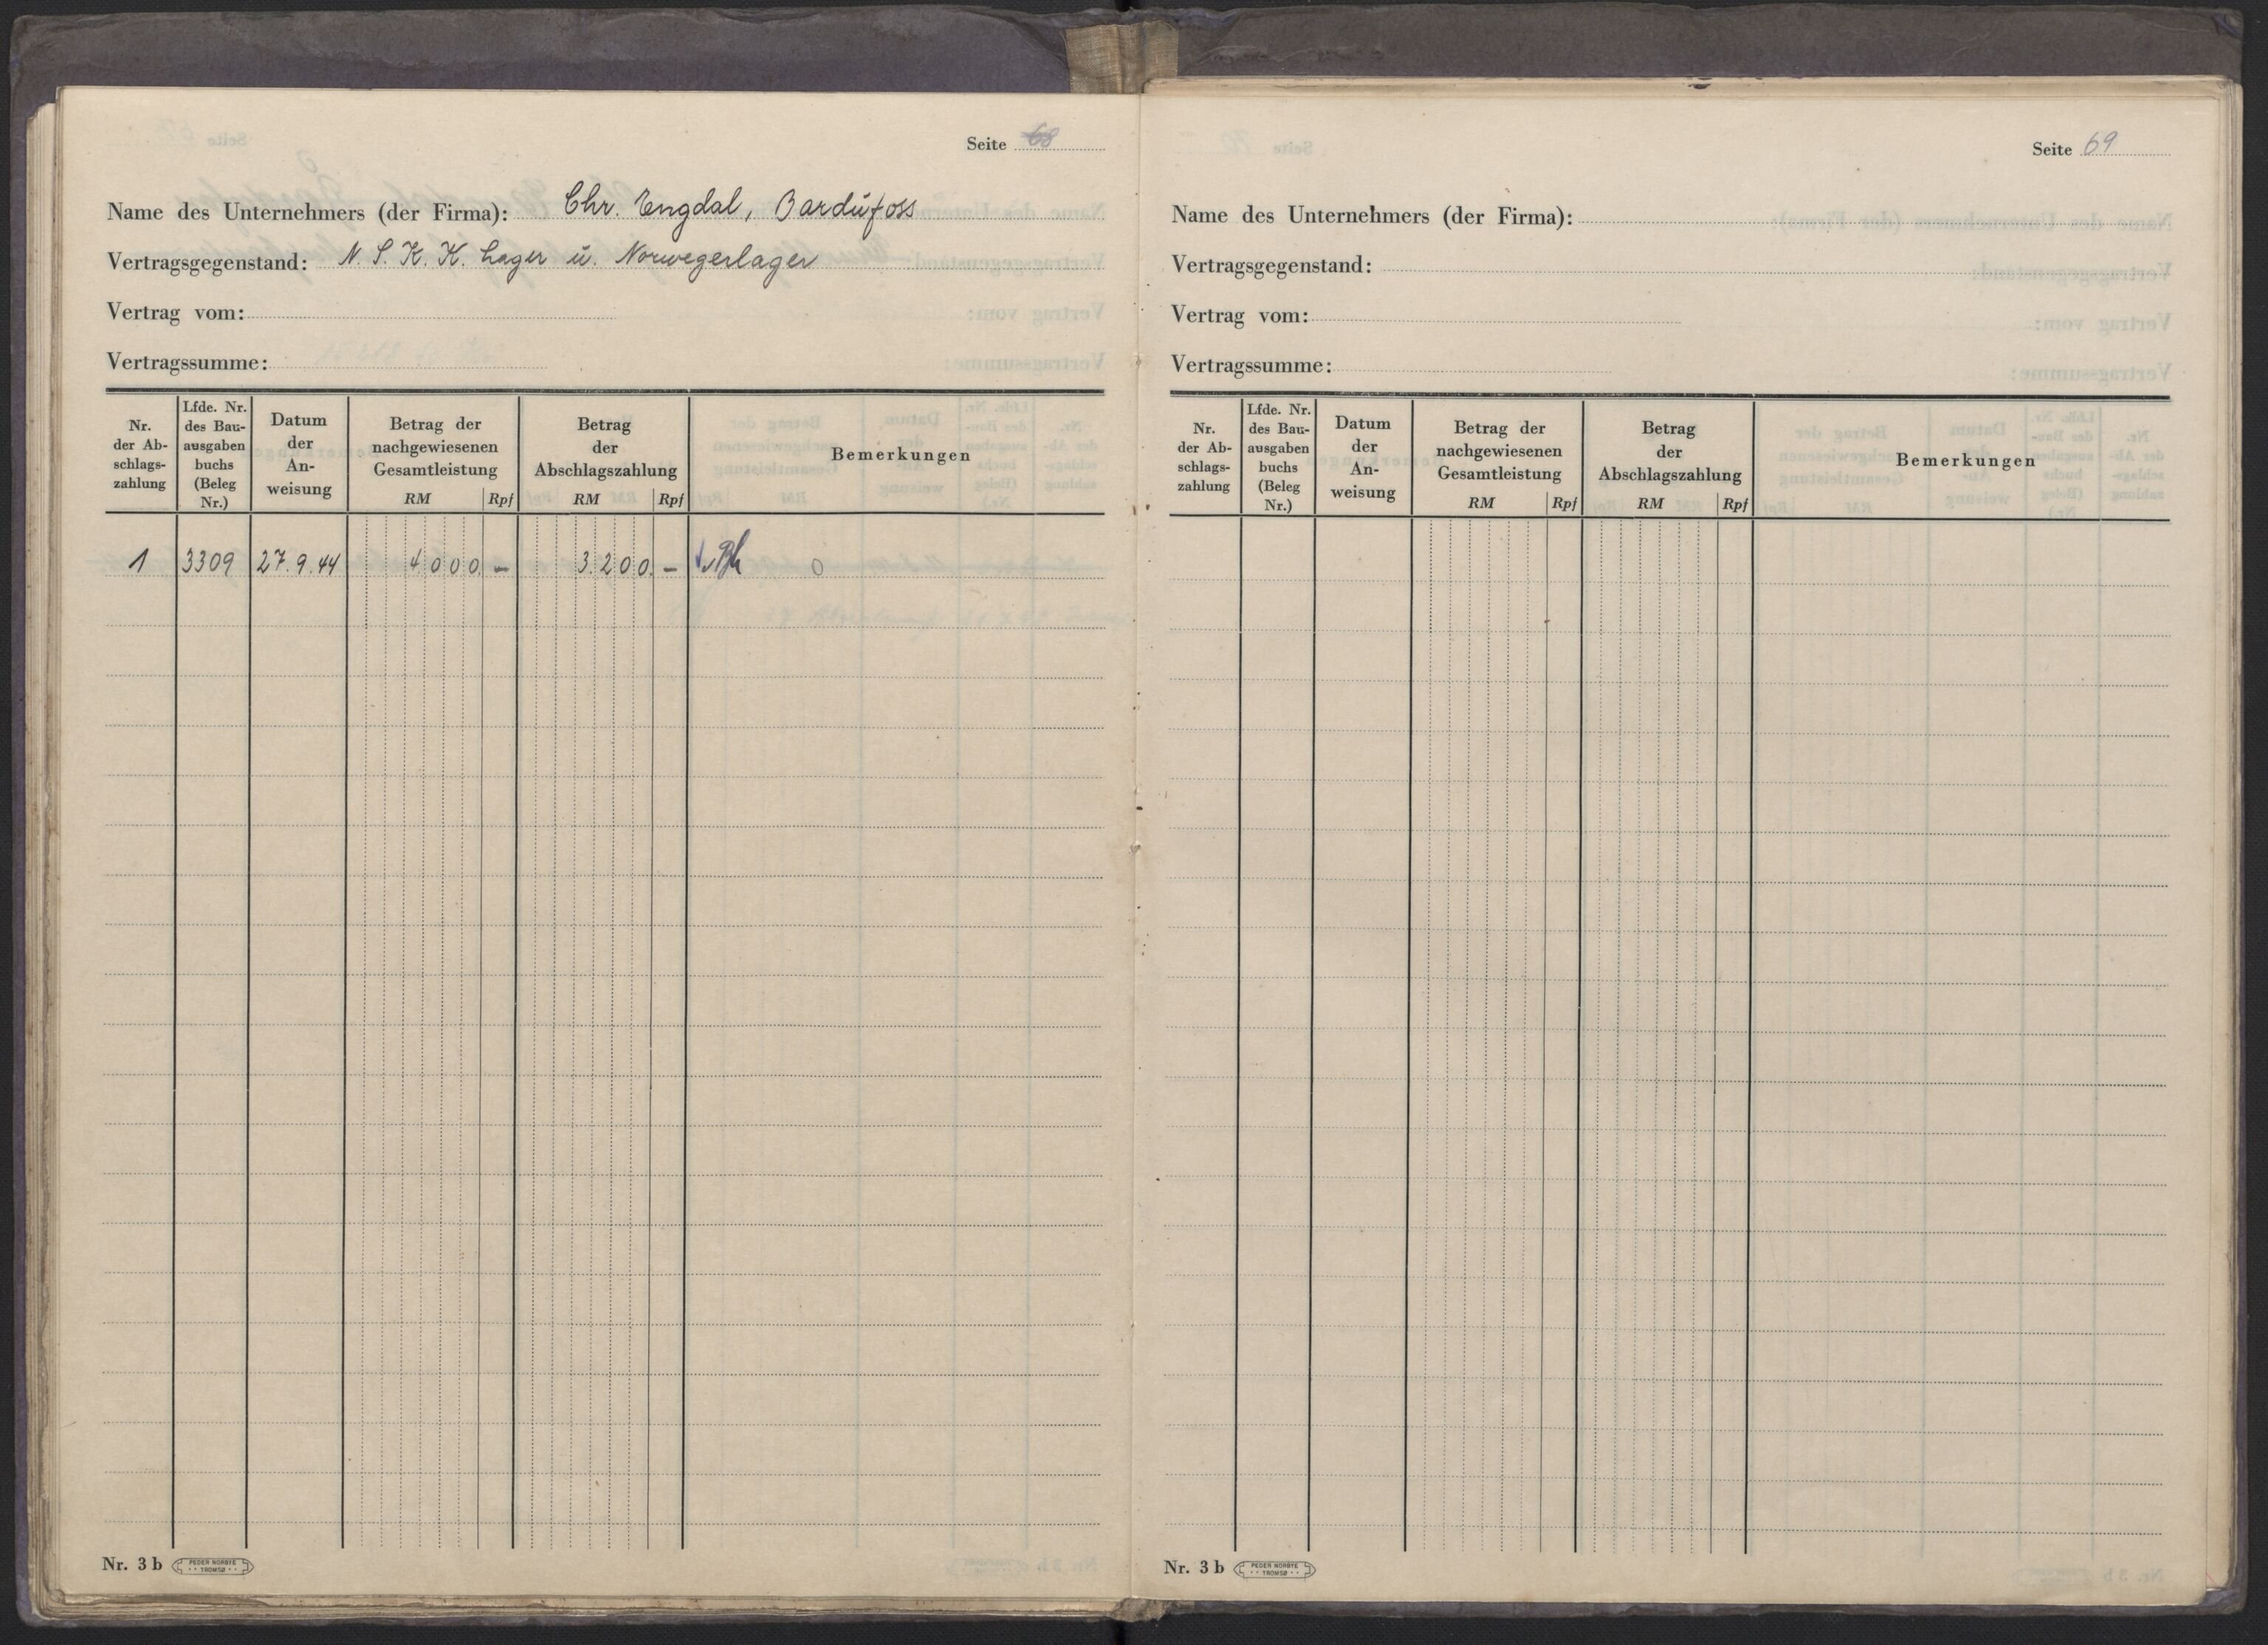 Seite 68
Name des Unternehmers (der Firma): Chr. Engdal, Bardufoss
Vertragsgegenstand: N.S.K.K. Lager u. Norwegerlager
Vertrag vom:
Vertragssumme:
Nr. der Ab-schlags-zahlung
Lfde. Nr. des Bau-ausgaben buchs (Beleg Nr.)
Datum der An-weisung
Betrag der nachgewiesenen Gesamtleistung RM Rpf
Betrag der Abschlagszahlung RM Rpf
Bemerkungen
1 3309 27.9.44 4000 – 3.200. – 0
Nr. 3 b PEDER NORBYE TROMSØ
Seite 69
Name des Unternehmers (der Firma):
Vertragsgegenstand:
Vertrag vom:
Vertragssumme:
Nr. der Ab-schlags-zahlung
Lfde. Nr. des Bau-ausgaben buchs (Beleg Nr.)
Datum der An-weisung
Betrag der nachgewiesenen Gesamtleistung RM Rpf
Betrag der Abschlagszahlung RM Rpf
Bemerkungen
Nr. 3 b PEDER NORBYE TROMSØ